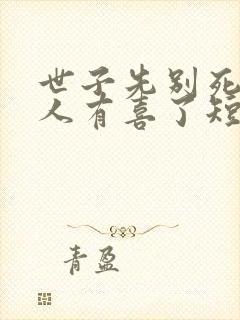 世子先别死
人有喜了短
青盈